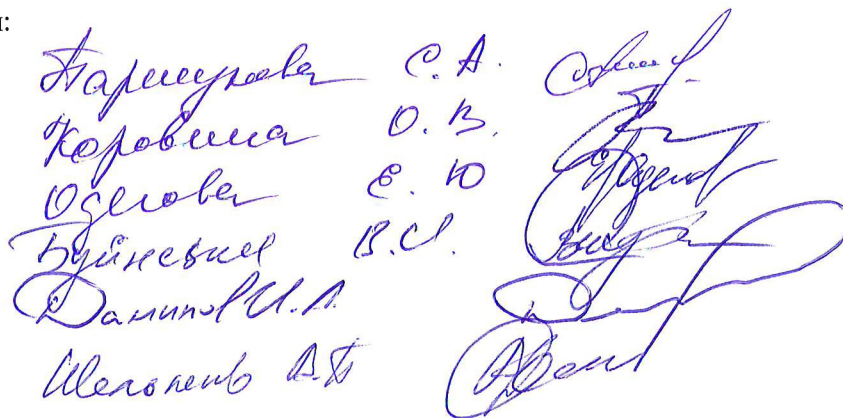 и:
Паршукова С. А.
Коровина О. В.
Одегова Е. Ю
Буйнецкий В. И.
Данилов И. А.
Шелопенко А. В